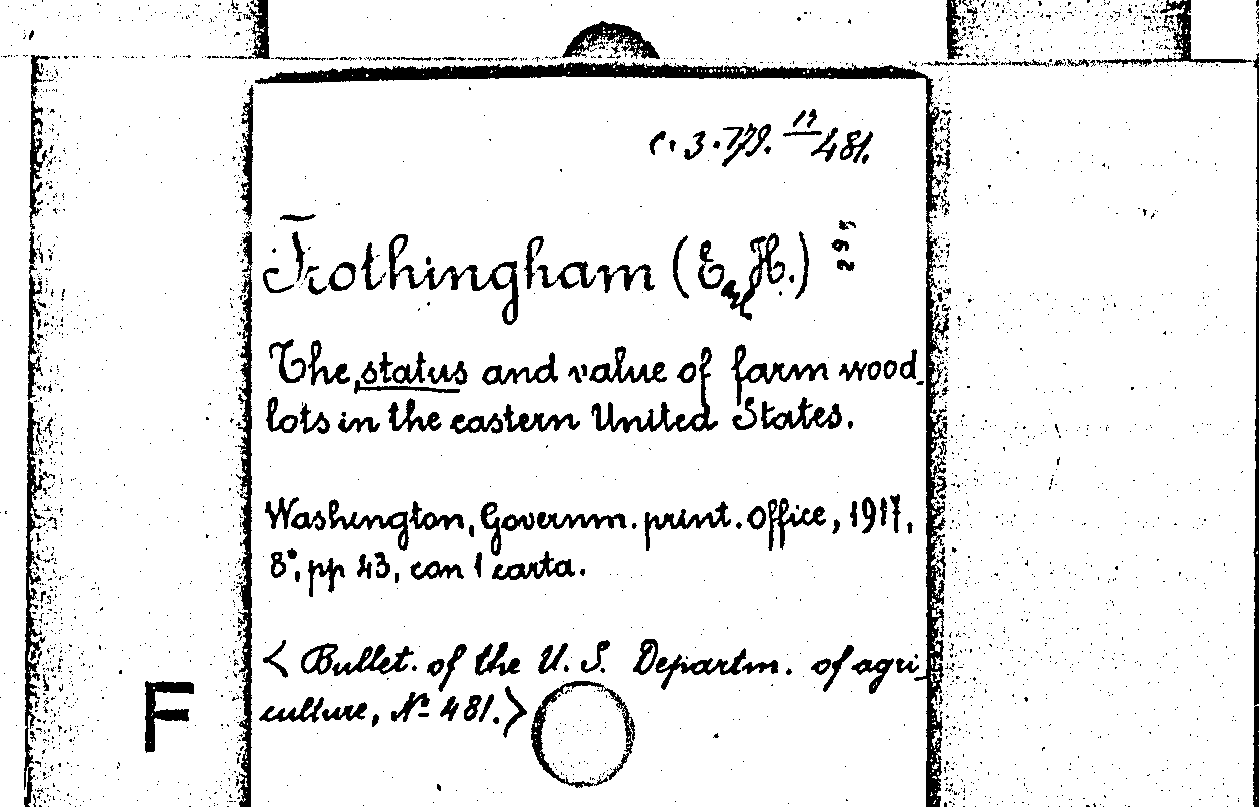 C. 3. 779. 17/481.
Frothingham (Earl H.) 295
The status and value of farm wood-
lots in the eastern United States.
Washington, Governm. print. office, 1917,
8°, pp 43, con 1 carta.
< Bullet. of the U. S. Departm. of agri-
culture, No 481. >
F